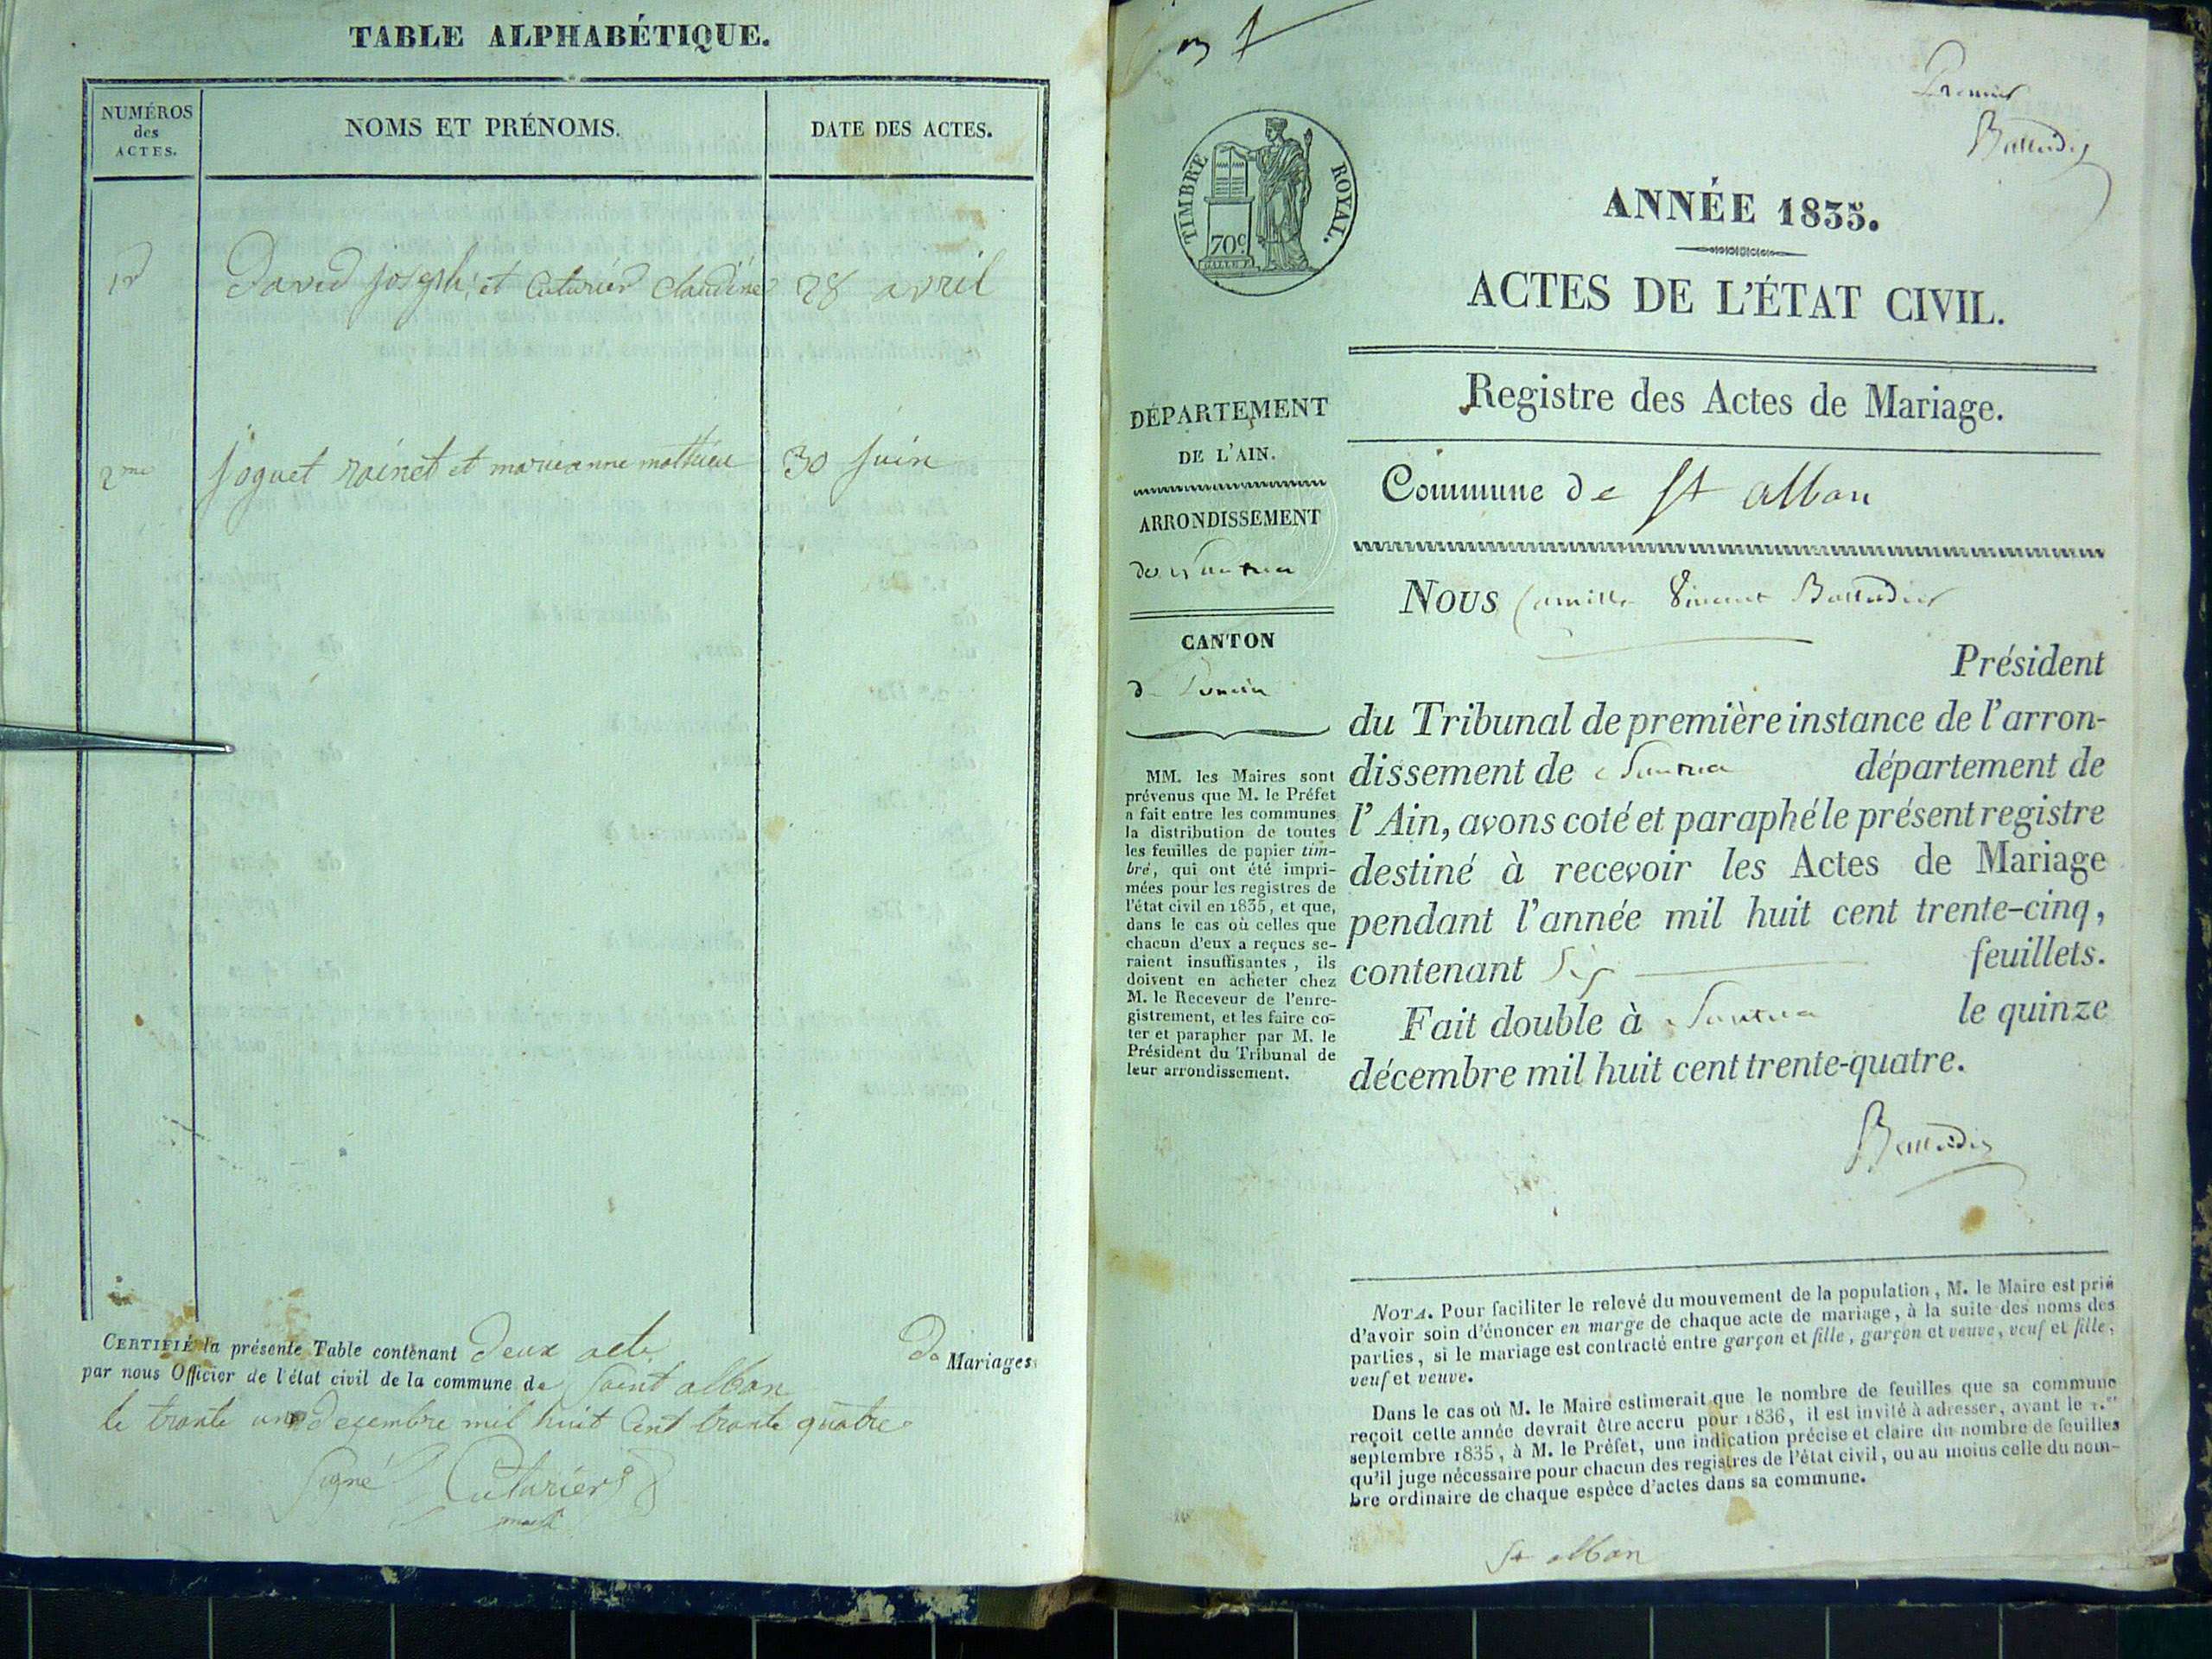 TABLE ALPHABÉTIQUE.
NUMÉROS
des
ACTES.
NOMS ET PRÉNOMS.
DATE DES ACTES.
1er David joseph et Cuturier Claudine 28 avril
2me joguet roinet et marieanne mathieu 30 juin
CERTIFIÉ la présente Table contenant deux acte de Mariages
par nous Officier de l'état civil de la commune de saint alban
le trante un decembre mil huit Cent trante quatre
signé Cuturier
Premier
Balleidier
TIMBRE ROYAL.
70c.
ANNÉE 1835.
ACTES DE L'ÉTAT CIVIL.
Registre des Actes de Mariage.
DÉPARTEMENT
DE L'AIN.
ARRONDISSEMENT
de Nantua
CANTON
de Poncin
MM. les Maires sont
prévenus que M. le Préfet
a fait entre les communes
la distribution de toutes
les feuilles de papier tim-
bré, qui ont été impri-
mées pour les registres de
l'état civil en 1835, et que,
dans le cas où celles que
chacun d'eux a reçues se-
raient insuffisantes, ils
doivent en acheter chez
M. le Receveur de l'enre-
gistrement, et les faire co-
ter et parapher par M. le
Président du Tribunal de
leur arrondissement.
Commune de St alban
Nous Camille Vincent Balleidier
Président
du Tribunal de première instance de l'arron-
dissement de Nantua département de
l'Ain, avons coté et paraphé le présent registre
destiné à recevoir les Actes de Mariage
pendant l'année mil huit cent trente-cinq,
contenant Six feuillets.
Fait double à Nantua le quinze
décembre mil huit cent trente-quatre.
Balleidier
NOTA. Pour faciliter le relevé du mouvement de la population, M. le Maire est prié
d'avoir soin d'énoncer en marge de chaque acte de mariage, à la suite des noms des
parties, si le mariage est contracté entre garçon et fille, garçon et veuve, veuf et fille,
veuf et veuve.
Dans le cas où M. le Maire estimerait que le nombre de feuilles que sa commune
reçoit cette année devrait être accru pour 1836, il est invité à adresser, avant le 1.er
septembre 1835, à M. le Préfet, une indication précise et claire du nombre de feuilles
qu'il juge nécessaire pour chacun des registres de l'état civil, ou au moins celle du nom-
bre ordinaire de chaque espèce d'actes dans sa commune.
St alban